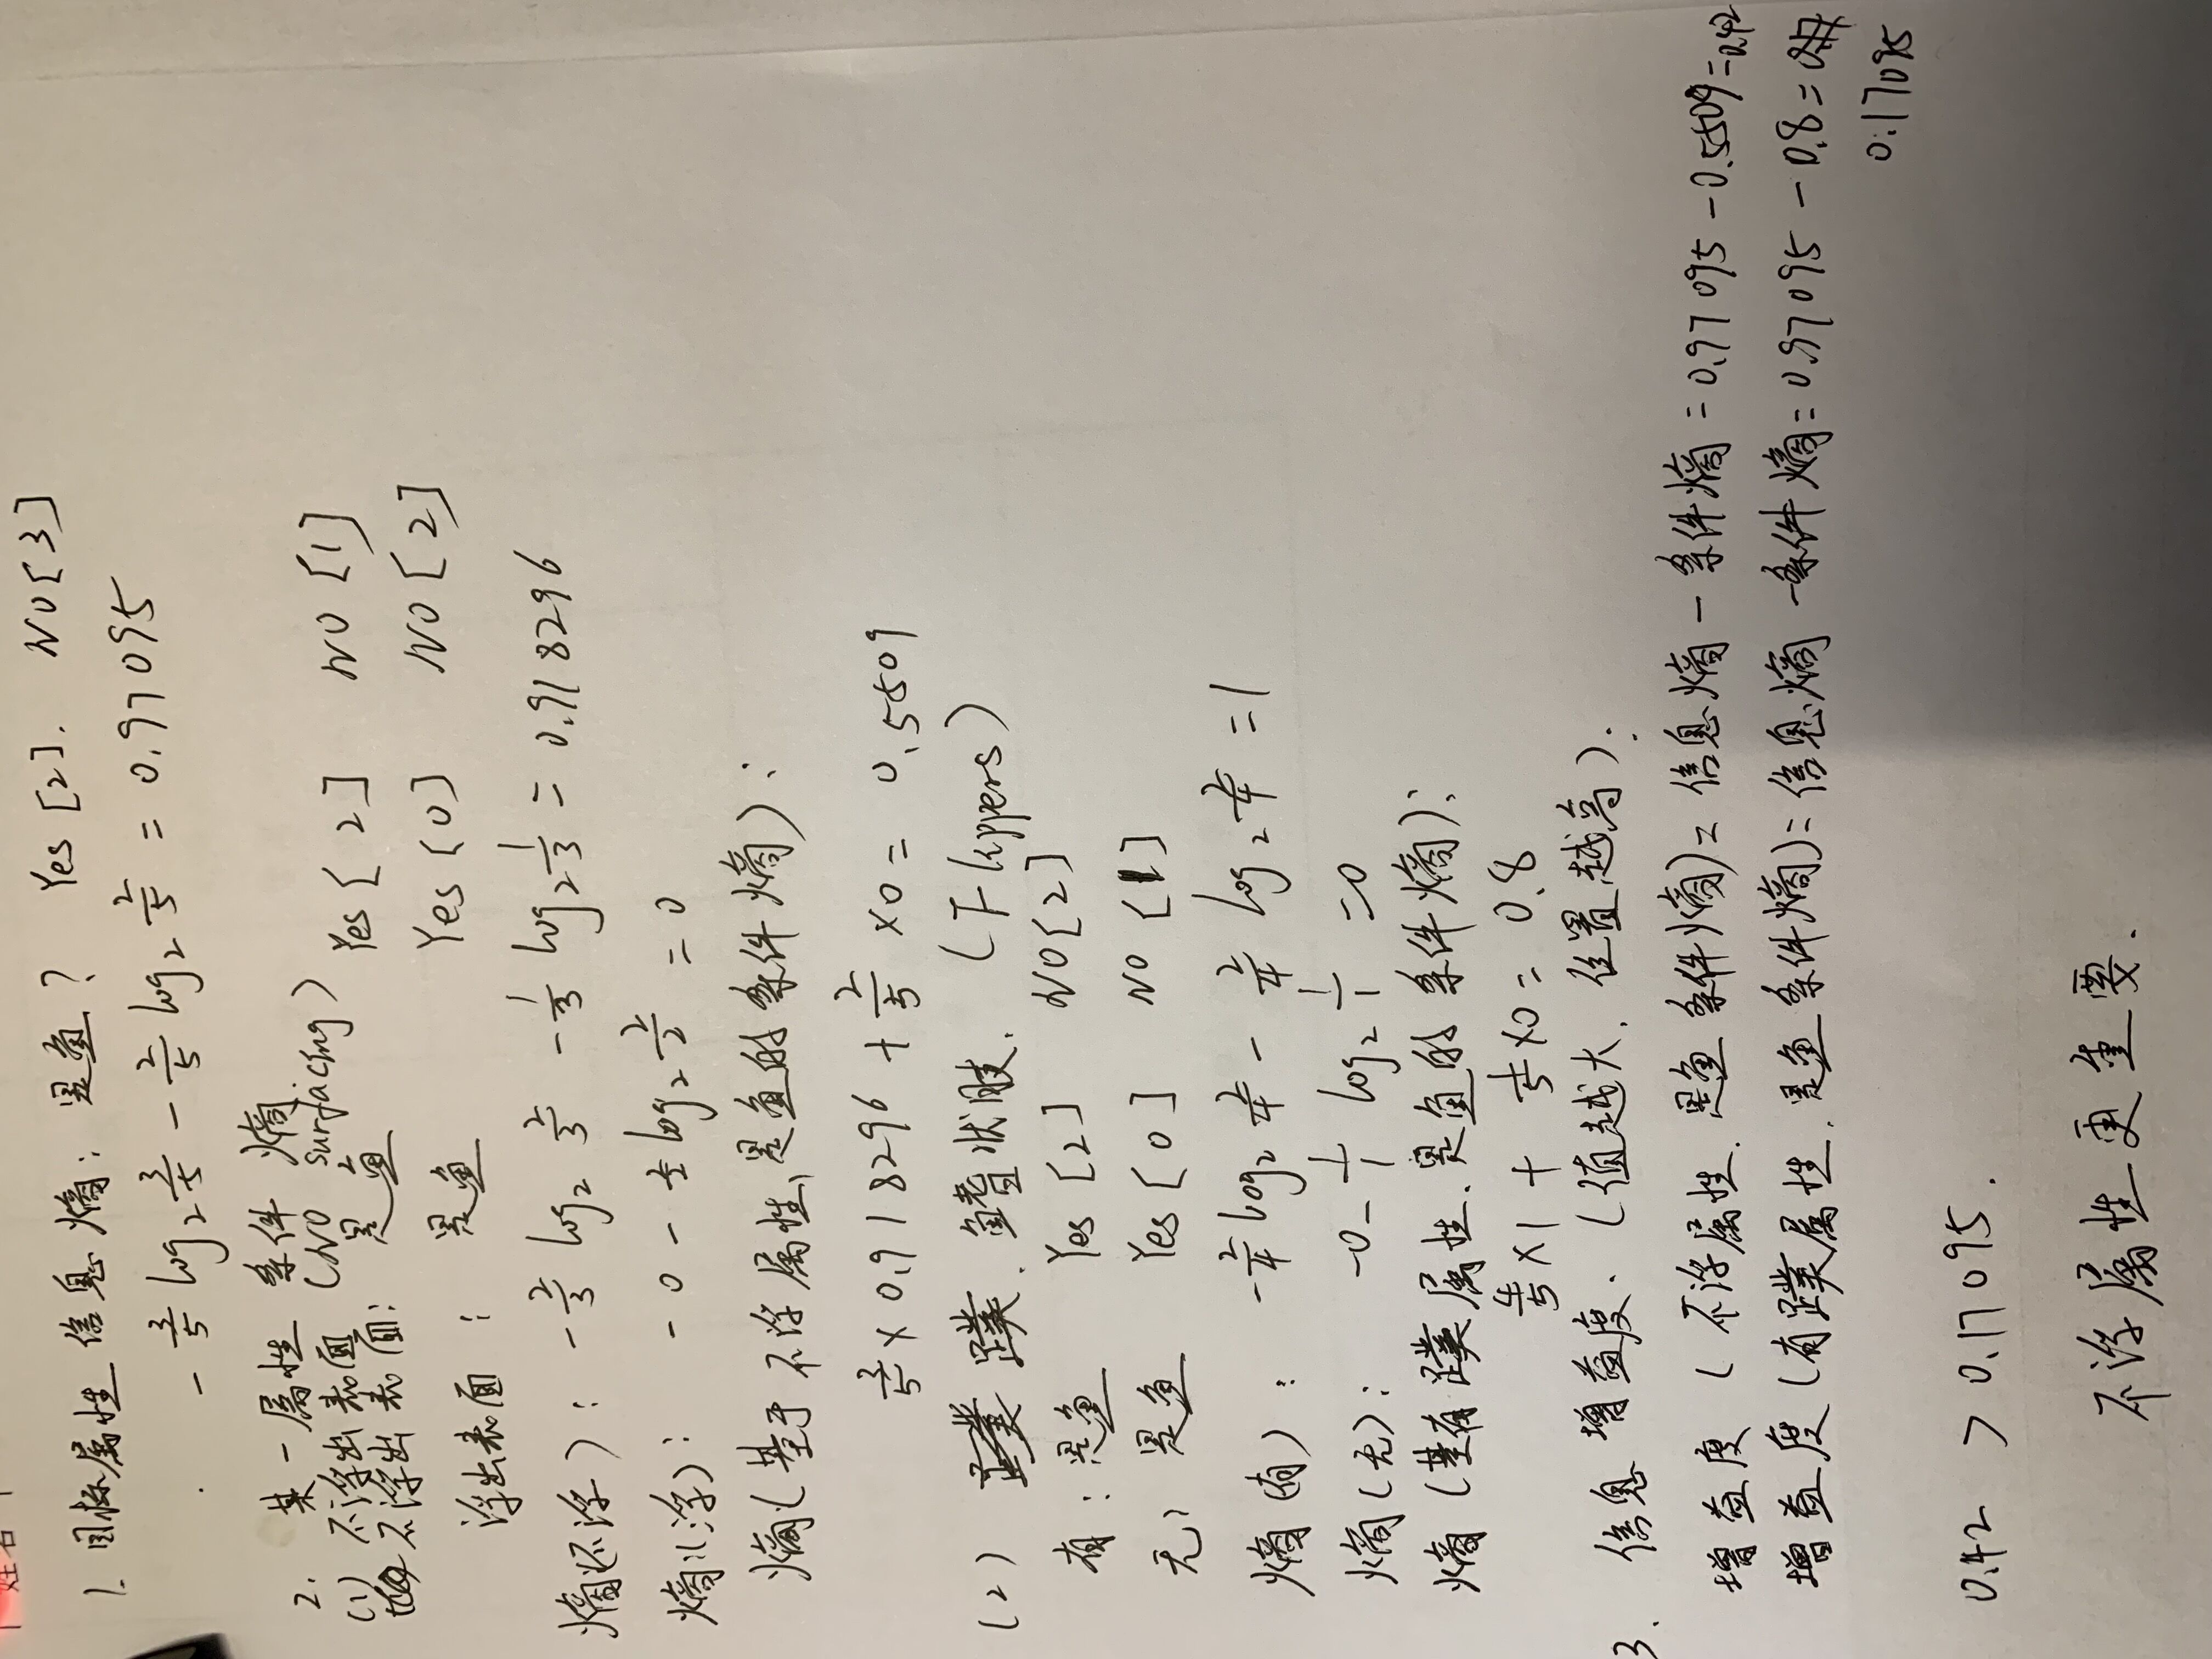 姓名
1. 目标属性 信息熵: 是鱼? Yes [2]. NO [3]
- 3/5 log₂ 3/5 - 2/5 log₂ 2/5 = 0.97095
2. 某一属性 条件 熵
(1) 不浮出表面 (No surfacing)
不浮出表面: 是鱼 Yes [2] NO [1]
浮出表面: 是鱼 Yes [0] NO [2]
熵(不浮): - 2/3 log₂ 2/3 - 1/3 log₂ 1/3 = 0.918296
熵(浮): - 0 - 2/2 log₂ 2/2 = 0
熵(基于 不浮 属性, 是鱼的 条件熵):
3/5 × 0.918296 + 2/5 × 0 = 0.5509
(2) 蹼. 鳍状肢. (Flippers)
有: 是鱼 Yes [2] NO [2]
无: 是鱼 Yes [0] NO [1]
熵(有): - 2/4 log₂ 2/4 - 2/4 log₂ 2/4 = 1
熵(无): -0 - 1/1 log₂ 1/1 = 0
熵(基有 蹼 属性. 是鱼的 条件熵):
4/5 × 1 + 1/5 × 0 = 0.8
3. 信息 增益度. (值越大. 位置越高):
增益度 (不浮属性. 是鱼条件熵) = 信息熵 - 条件熵 = 0.97095 - 0.5509 = 0.42
增益度 (有蹼属性. 是鱼条件熵) = 信息熵 - 条件熵 = 0.97095 - 0.8 =
0.17095
0.42 > 0.17095.
不浮属性更重要.